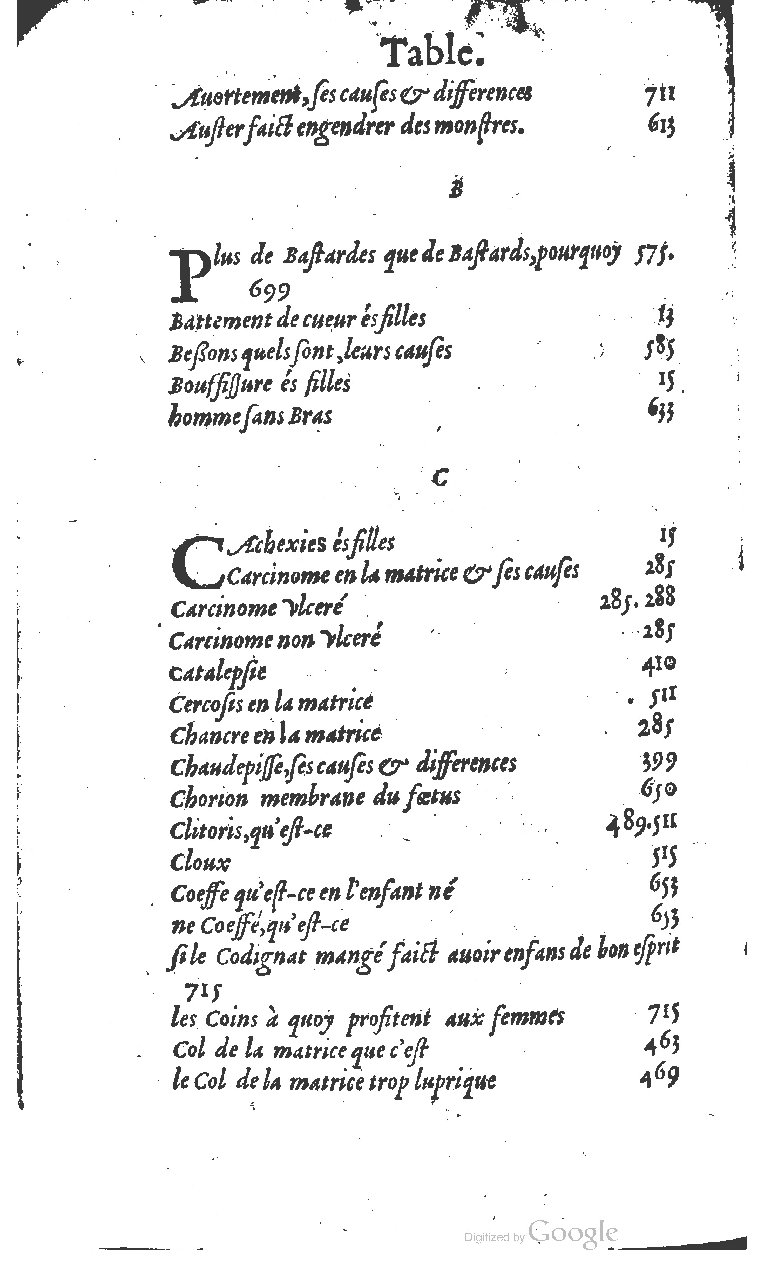 Table.
Auortement, ſes cauſes & differences 711
Auſter faict engendrer des monſtres. 613
B
Plus de Baſtardes que de Baſtards, pourquoy 575.
699
Battement de cueur és filles 13
Beſſons quels ſont, leurs cauſes 585
Bouffiſſure és filles 15
homme ſans Bras 633
C
CAchexies és filles 15
Carcinome en la matrice & ſes cauſes 285
Carcinome vlceré 285. 288
Carcinome non vlceré 285
Catalepſie 410
Cercoſis en la matrice 511
Chancre en la matrice 285
Chaudepiſſe, ſes cauſes & differences 399
Chorion membrane du fœtus 650
Clitoris, qu'eſt-ce 489. 511
Cloux 515
Coeffe qu'eſt-ce en l'enfant né 653
ne Coeffé, qu'eſt-ce 653
ſi le Codignat mangé faict auoir enfans de bon eſprit
715
les Coins à quoy profitent aux femmes 715
Col de la matrice que c'eſt 463
le Col de la matrice trop luprique 469
Digitized by Google